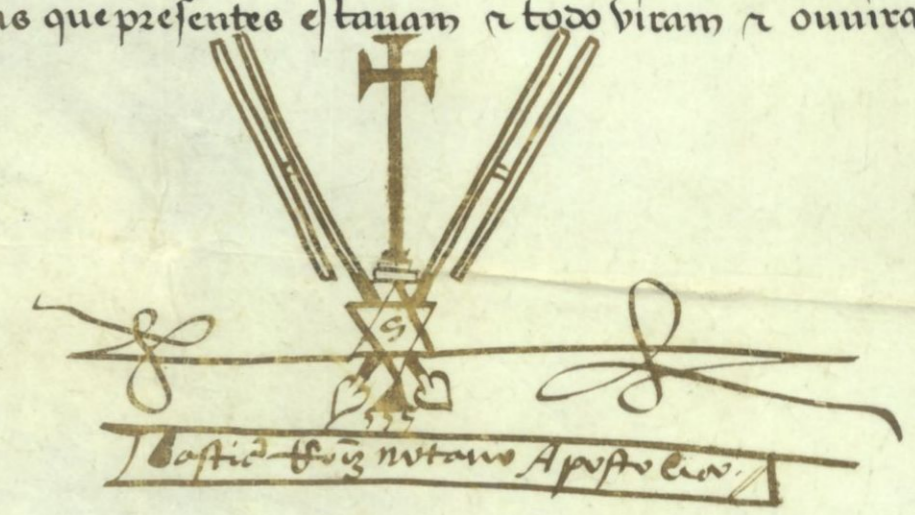 as que presentes estauam ⁊ todo viram ⁊ ouuira
S
notario Apostolico